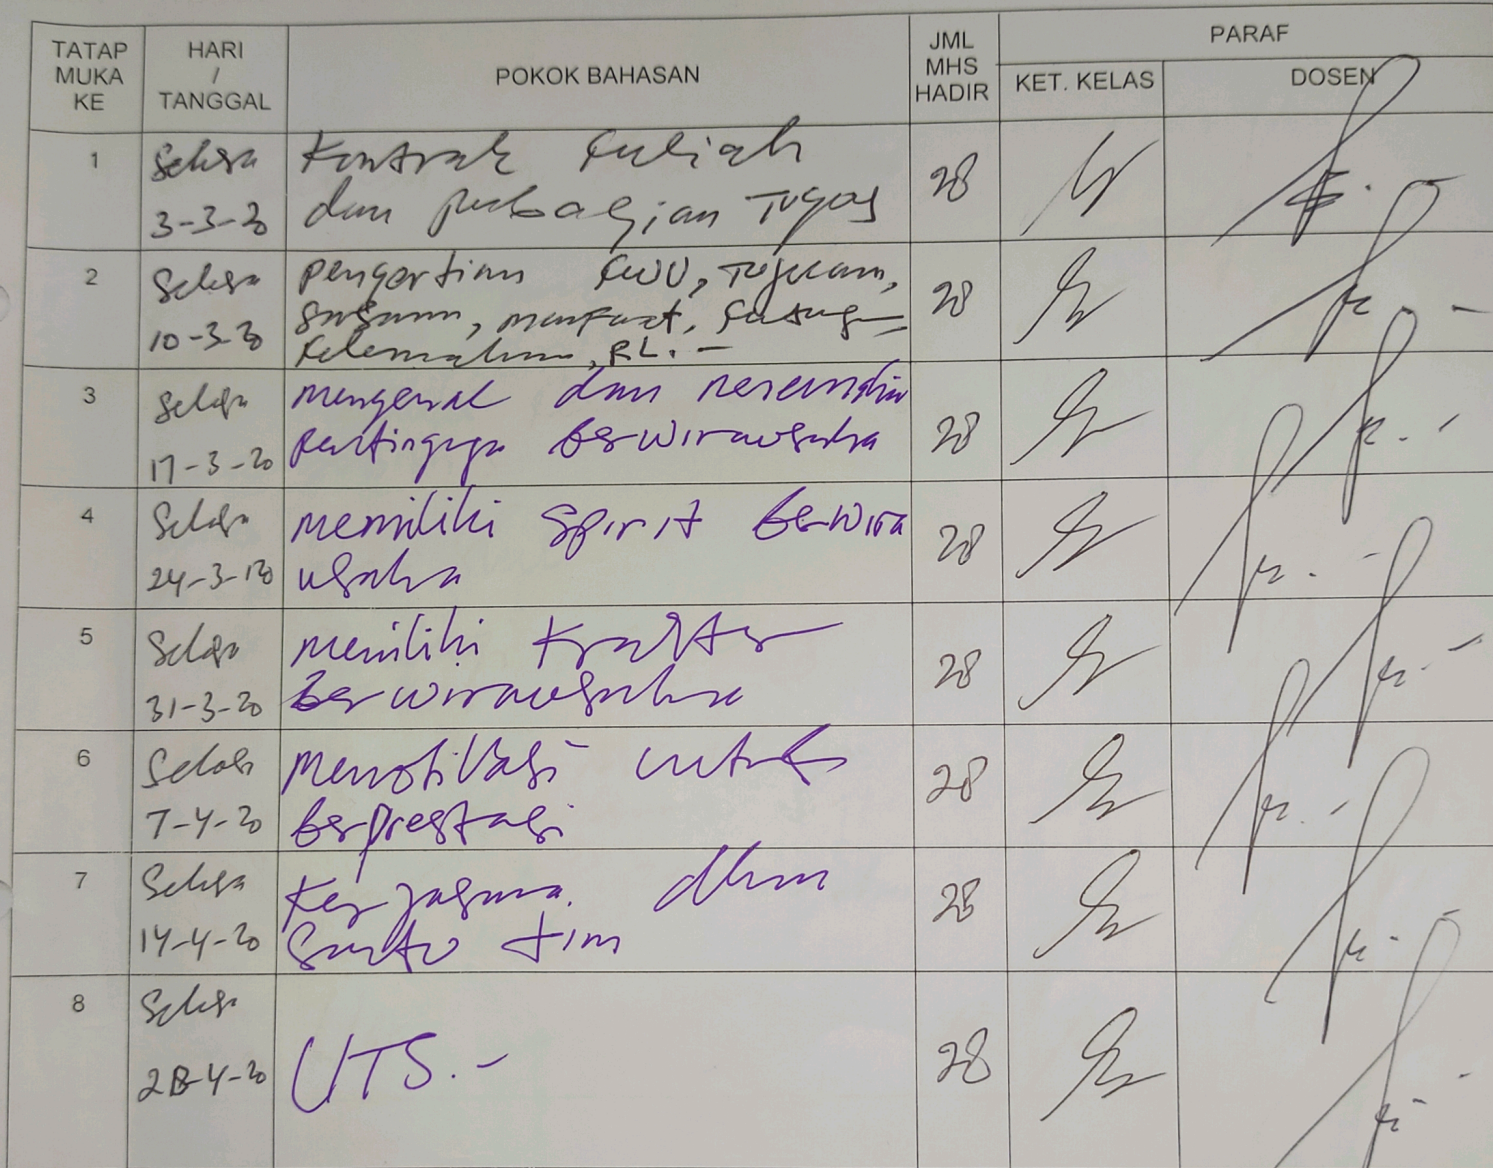 TATAP MUKA KE
HARI / TANGGAL
POKOK BAHASAN
JML MHS HADIR
PARAF
KET. KELAS
DOSEN
1
Selasa
3-3-20
Kontrak Kuliah
dan pembagian Tugas
28
2
Selasa
10-3-20
pengertian KWU, Tujuan,
manfaat,
Kelemahan, RL. -
28
3
Selasa
17-3-20
mengenal dan
pentingnya berwirausaha
28
4
Selasa
24-3-20
memiliki spirit berwira
usaha
28
5
Selasa
31-3-20
memiliki
berwirausaha
28
6
Selasa
7-4-20
Memotivasi untuk
berprestasi
28
7
Selasa
14-4-20
Kerjasama dlm
Suatu tim
28
8
Selasa
28-4-20
UTS. -
28